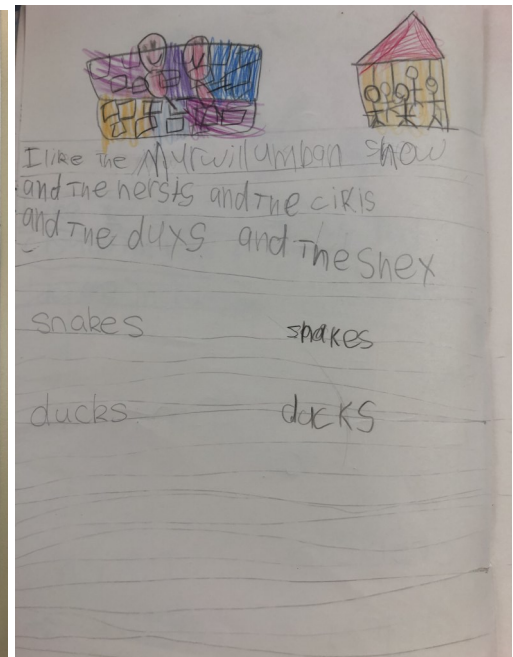 I like the Murwillumbah show
and The nersts and The ciRIs
and The duxs and The snex
snakes snakes
ducks ducks